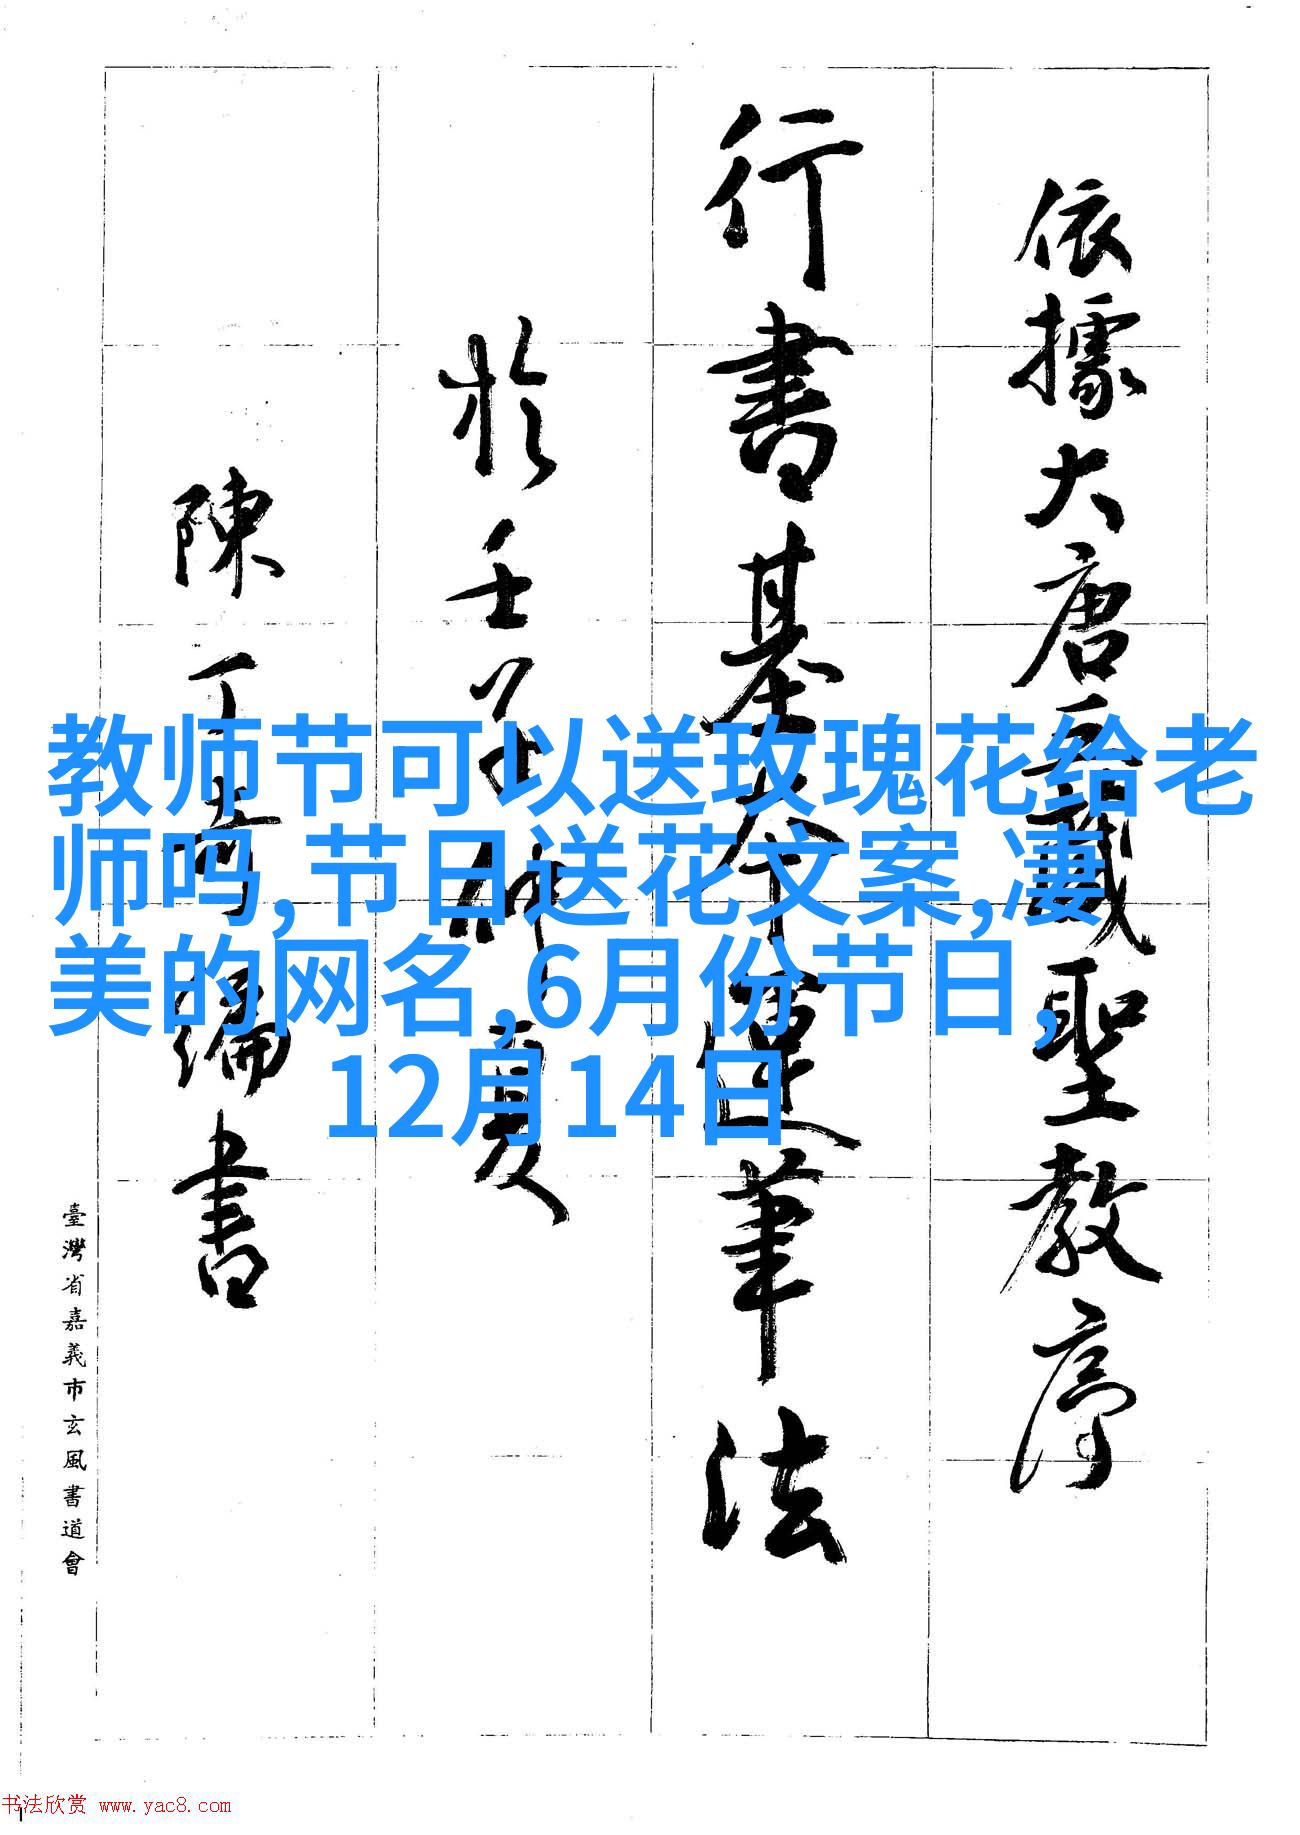 依據大唐三藏聖教序
行書基本運筆法
於壬子仲夏
陳丁奇編書
臺灣省嘉義市玄風書道會
教师节可以送玫瑰花给老
师吗,节日送花文案,凄
美的网名,6月份节日,
12月14日
书法欣赏 www.yac8.com
1